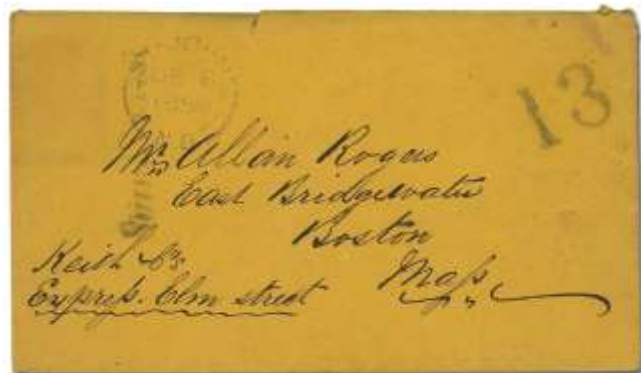 13
Mrs Allan Rogers
East Bridgewater
Boston
Mass
Keith &Co's
Express. Elm street